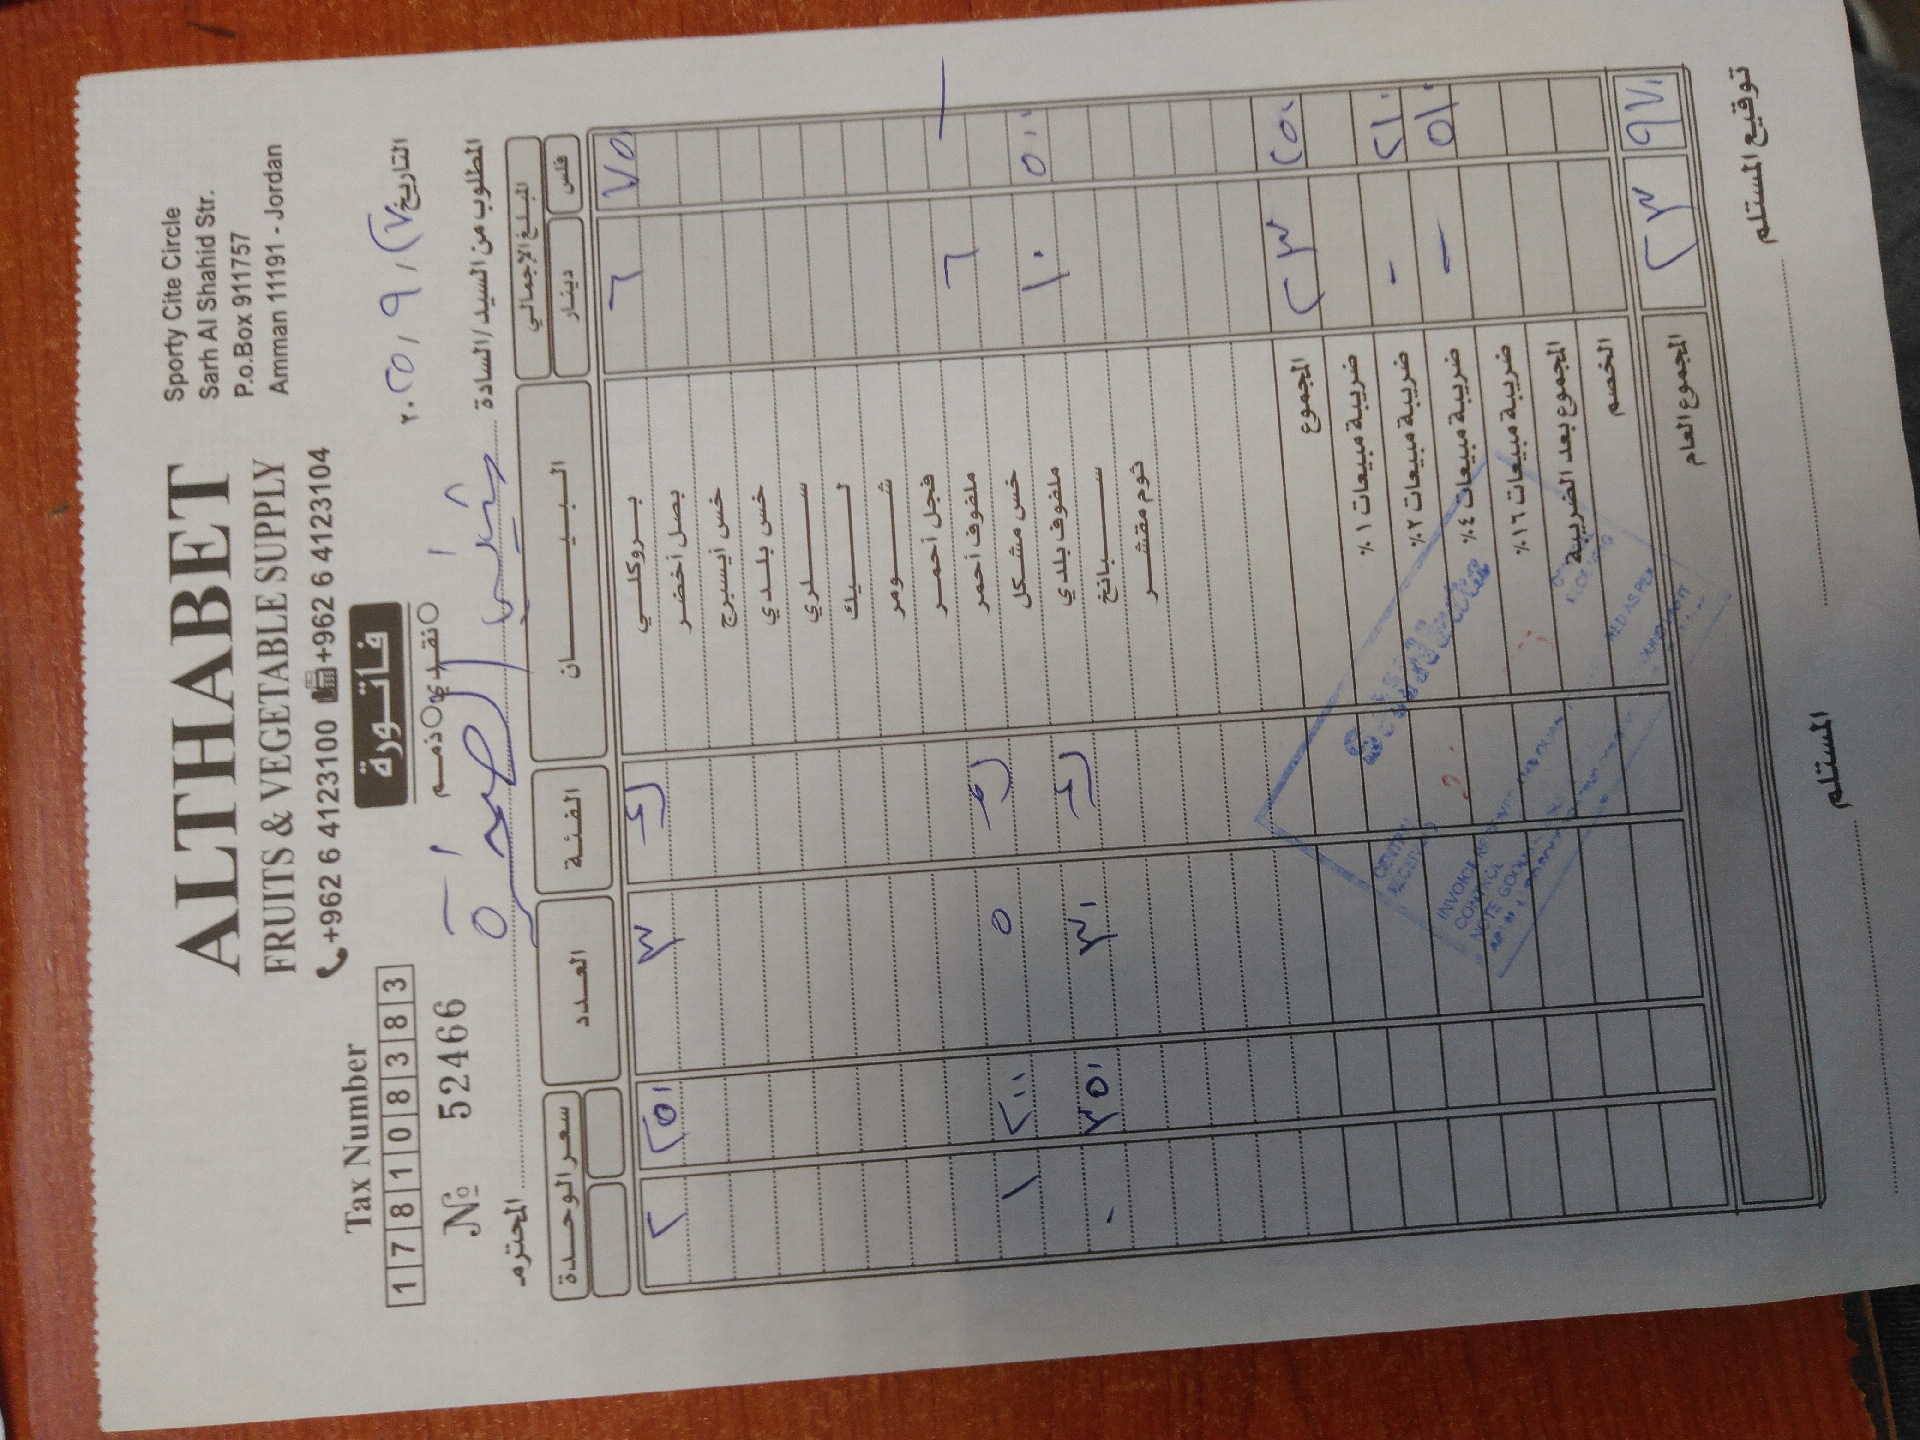 ALTHABET
FRUITS & VEGETABLE SUPPLY
+962 6 4123100 +962 6 4123104
Sporty Cite Circle
Sarh Al Shahid Str.
P.o.Box 911757
Amman 11191 - Jordan
Tax Number
1 7 8 1 0 8 3 8 3
فاتورة
№ 52466
ذمم نقدي
التاريخ ٢٧ / ٩ / ٢٠٢٥
المطلوب من السيد / السادة
المحترم
المبلغ الإجمالي البيـــــــان الفئة العدد سعر الوحدة
فلس دينار
٧٥٠ ٦ بروكلي ٣ ٢٥٠ ٢
بصل أخضر
خس أيسبرج
خس بلدي
سلري
ليك
شومر
فجل أحمر
٦ ملفوف أحمر ٥ ٢٠٠ ١
خس مشكل
٥٠٠ ١٠ ملفوف بلدي ٣٠ ٣٥٠ ٠
سبانخ
ثوم مقشر
٢٥٠ ٢٣ المجموع
ضريبة مبيعات ١٪
٢١٠ - ضريبة مبيعات ٢٪
٥١٠ - ضريبة مبيعات ٤٪
ضريبة مبيعات ١٦٪
المجموع بعد الضريبة
الخصم
٩٧٠ ٢٣ المجموع العام
توقيع المستلم
المستلم